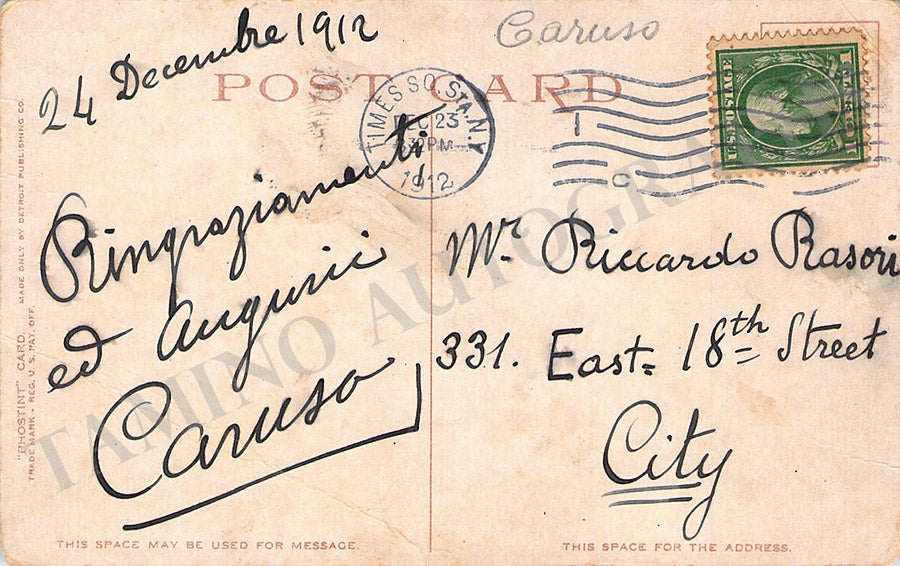 Caruso
24 Decembre 1912
POST CARD
TIMES SQ. STA. N.Y.
DEC 23
30 PM
1912
U.S. POSTAGE
Ringraziamenti
ed augurii
Caruso
Mr. Riccardo Rasori
331. East 18th Street
City
"PHOSTINT" CARD. MADE ONLY BY DETROIT PUBLISHING CO.
TRADE MARK - REG. U. S. PAT. OFF.
THIS SPACE MAY BE USED FOR MESSAGE.
THIS SPACE FOR THE ADDRESS.
TAMINO AUTOGRA